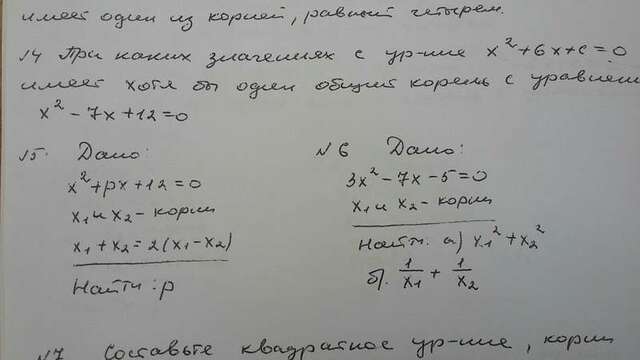 имеет один из корней, равный четырем.
№4 При каких значениях c ур-ние x²+6x+c=0
имеет хотя бы один общий корень с уравнен
x²-7x+12=0
№5. Дано:
x²+px+12=0
x₁ и x₂ - корни
x₁+x₂=2(x₁-x₂)
Найти: p
№6 Дано:
3x²-7x-5=0
x₁ и x₂ - корни
Найти: а) x₁²+x₂²
б). 1/x₁ + 1/x₂
№7 Составьте квадратное ур-ние, корни